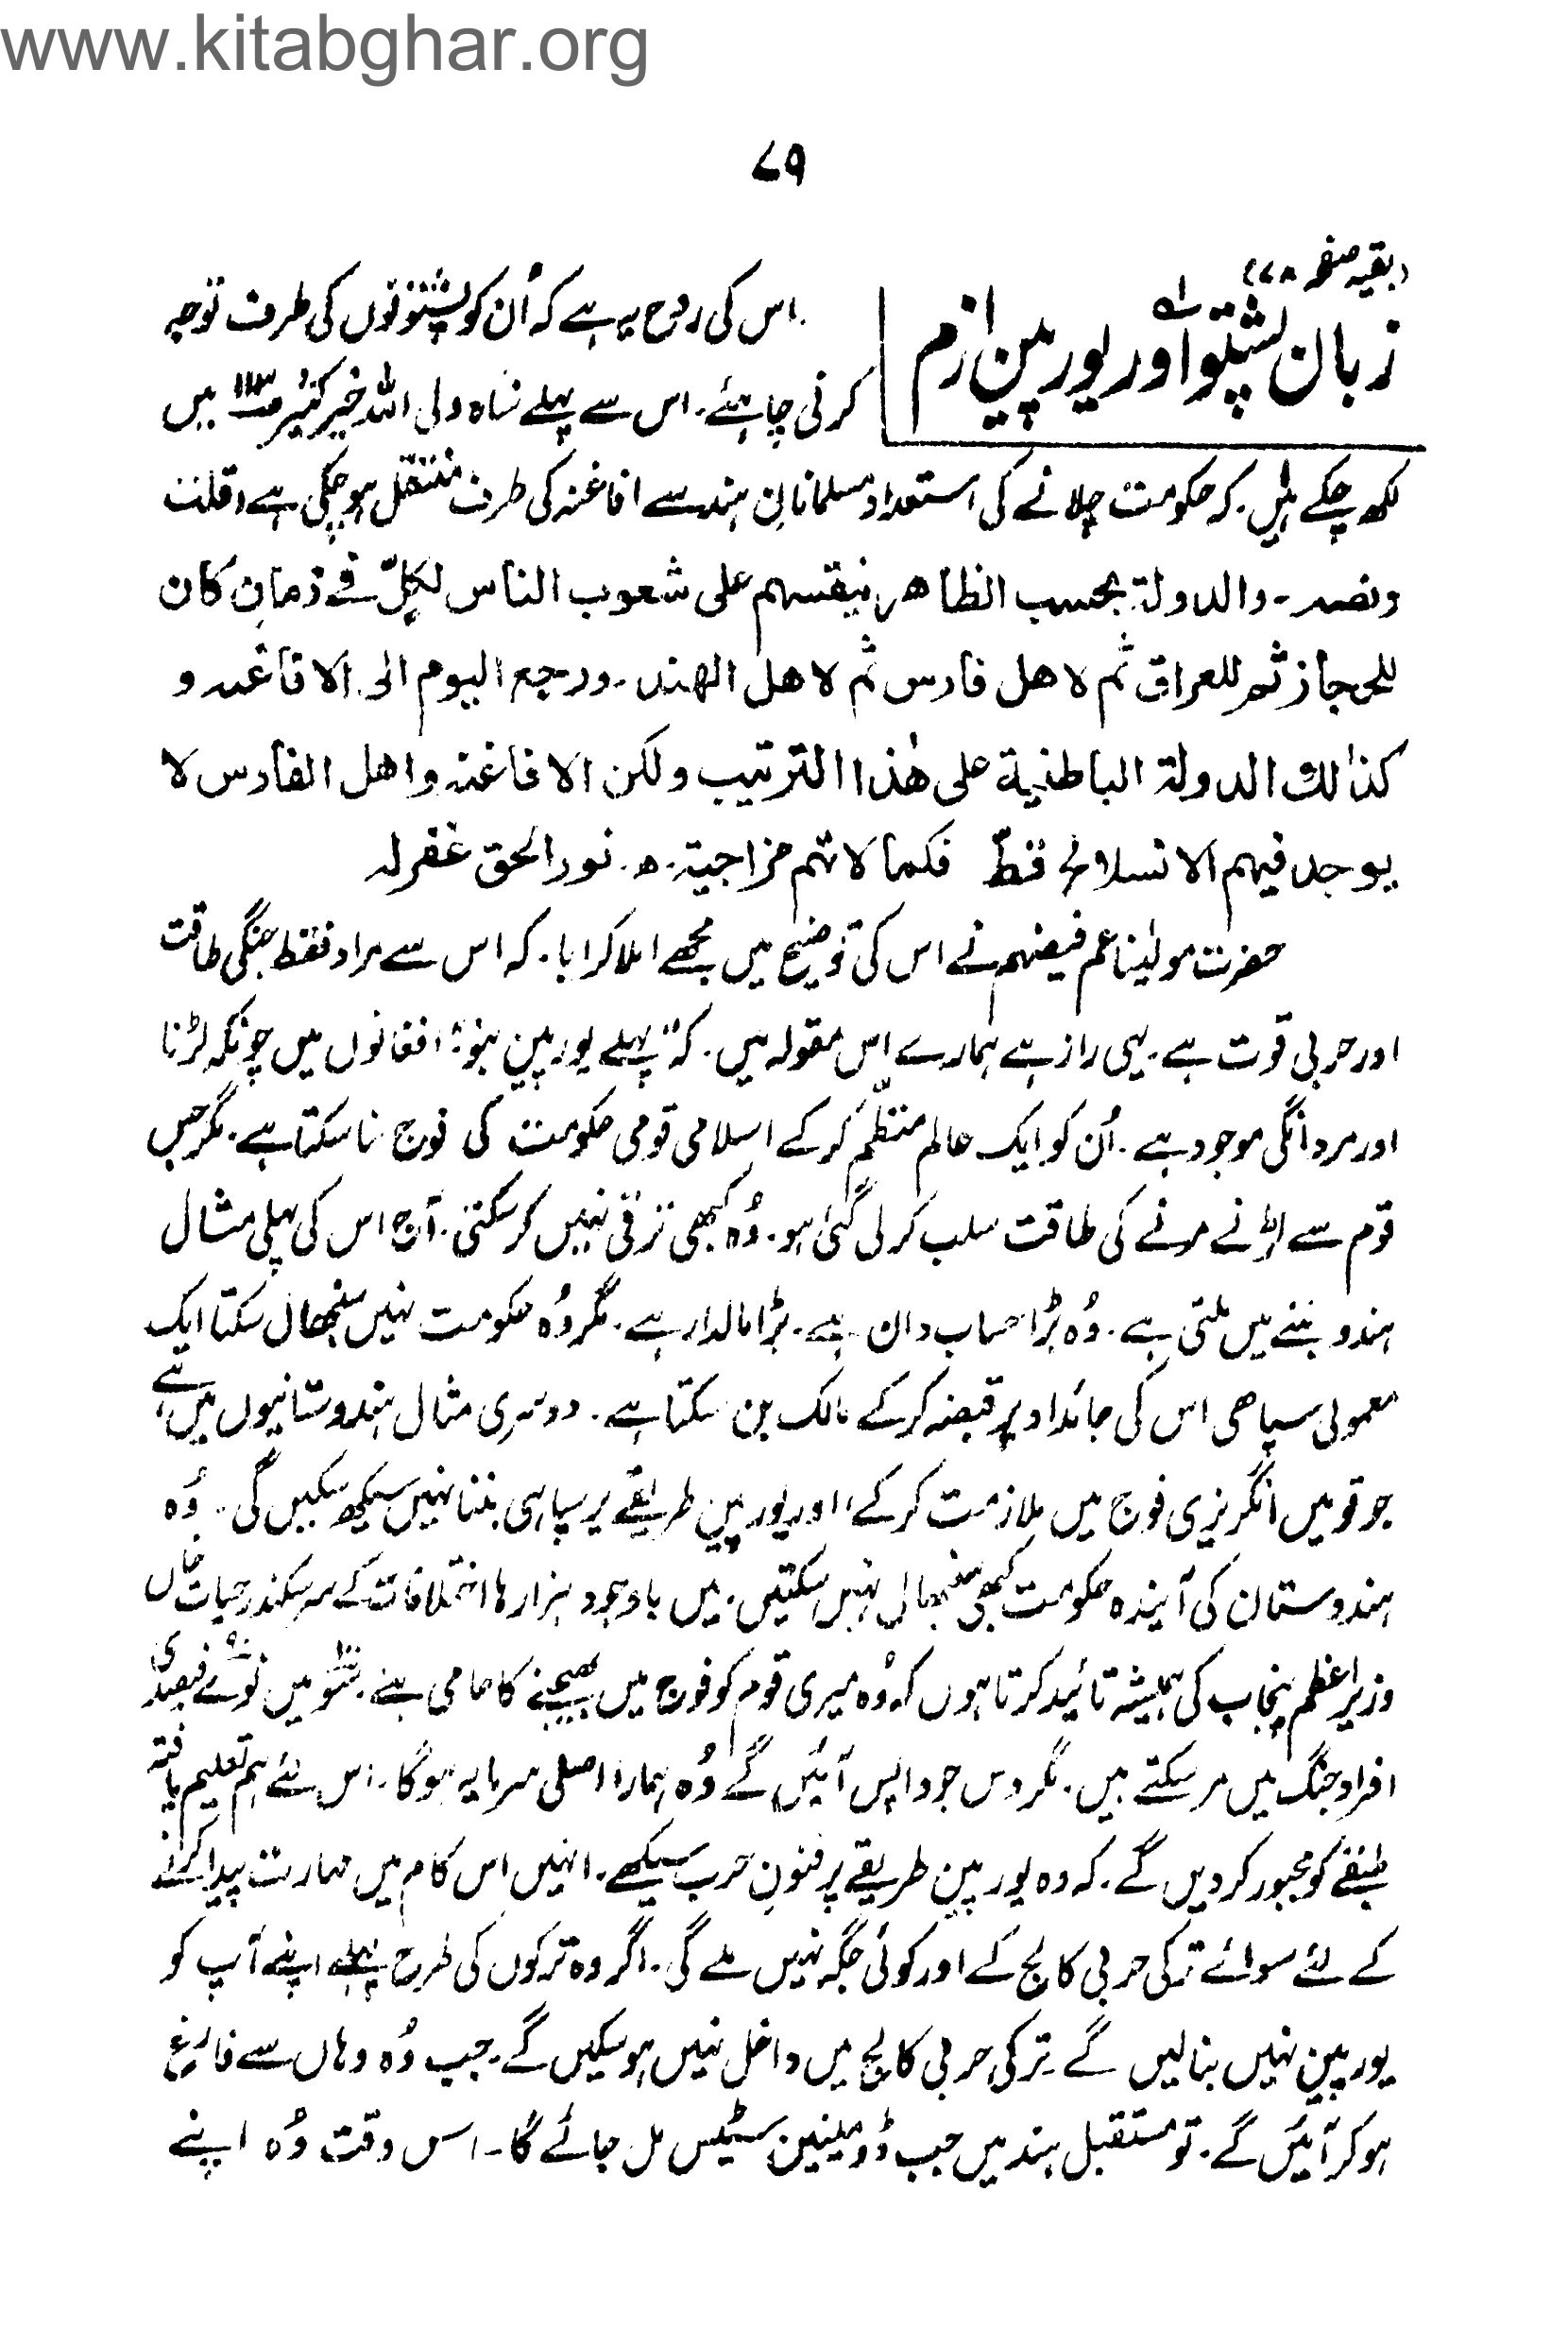 www.kitabghar.org
۷۹
(بقیہ صفحہ ۷۸)
زبان پشتو اور یورپین ازم
اس کی روح یہ ہے کہ اُن کو پشتونوں کی طرف توجہ
کرنی چاہئے۔ اس سے پہلے شاہ ولی اللہ خیر کثیر ص۱۱۳ میں
لکھ چکے ہیں۔ کہ حکومت چلانے کی استعداد مسلمانانِ ہند سے افاغنہ کی طرف منتقل ہو چکی ہے، قلت
ونصہ۔ والدولۃ بحسب الظاھر ینقسم علی شعوب الناس لکلٍّ فے زمانِ کان
للحجاز ثم للعراق ثم لاھل فارس ثم لاھل الھند۔ ورجع الیوم الی الافاغنہ و
کذالک الدولۃ الباطنیۃ علی ھٰذا الترتیب ولکن الافاغنہ واھل الفارس لا
یوجد فیہم الانسلاخ قطّ فکمالاتہم مزاجیۃ۔ ھ۔ نورالحق غفرلہ
حضرت مولیٰنا عم فیضہم نے اس کی توضیح میں مجھے املا کرایا۔ کہ اس سے مراد فقط جنگی طاقت
اور حربی قوت ہے۔ یہی راز ہے ہمارے اِس مقولہ میں۔ کہ "پہلے یورپین بنو" افغانوں میں چونکہ لڑنا
اور مردانگی موجود ہے۔ اُن کو ایک عالم منظّم کر کے اسلامی قومی حکومت کی فوج بنا سکتا ہے۔ مگر جس
قوم سے لڑنے مرنے کی طاقت سلب کر لی گئی ہو۔ وُہ کبھی ترقی نہیں کر سکتی۔ آج اس کی پہلی مثال
ہندو بننے میں ملتی ہے۔ وُہ بڑا حساب دان ہے۔ بڑا مالدار ہے۔ مگر وُہ حکومت نہیں سنبھال سکتا ایک
معمولی سپاھی اس کی جائداد پر قبضہ کر کے مالک بن سکتا ہے۔ دوسری مثال ہندوستانیوں میں ہے
جو قومیں انگریزی فوج میں ملازمت کر کے، اور یورپین طریقے پر سپاہی بننا نہیں سیکھ سکیں گی۔ وُہ
ہندوستان کی آیندہ حکومت کبھی سنبھال نہیں سکتیں۔ میں باوجود ہزارہا اختلافات کے سر سکندر حیات خاں
وزیراعظم پنجاب کی ہمیشہ تائید کرتا ہوں کہ وُہ میری قوم کو فوج میں بھیجنے کا حامی ہے۔ سَو میں نوّے فیصدی
افراد جنگ میں مر سکتے ہیں۔ مگر دس جو واپس آئیں گے وُہ ہمارا اصلی سرمایہ ہو گا۔ اس لئے ہم تعلیم یافتہ
طبقے کو مجبور کر دیں گے۔ کہ وہ یورپین طریقے پر فنونِ حرب سیکھے۔ انہیں اس کام میں مہارت پیدا کرنے
کے لئے سوائے ترکی حربی کالج کے اور کوئی جگہ نہیں ملے گی۔ اگر وہ ترکوں کی طرح پہلے اپنے آپ کو
یورپین نہیں بنالیں گے۔ ترکی حربی کالج میں داخل نہیں ہو سکیں گے۔ جب وُہ وہاں سے فارغ
ہو کر آئیں گے۔ تو مستقبل ہند میں جب ڈومینین سٹیٹس مل جائے گا۔ اس وقت وُہ اپنے